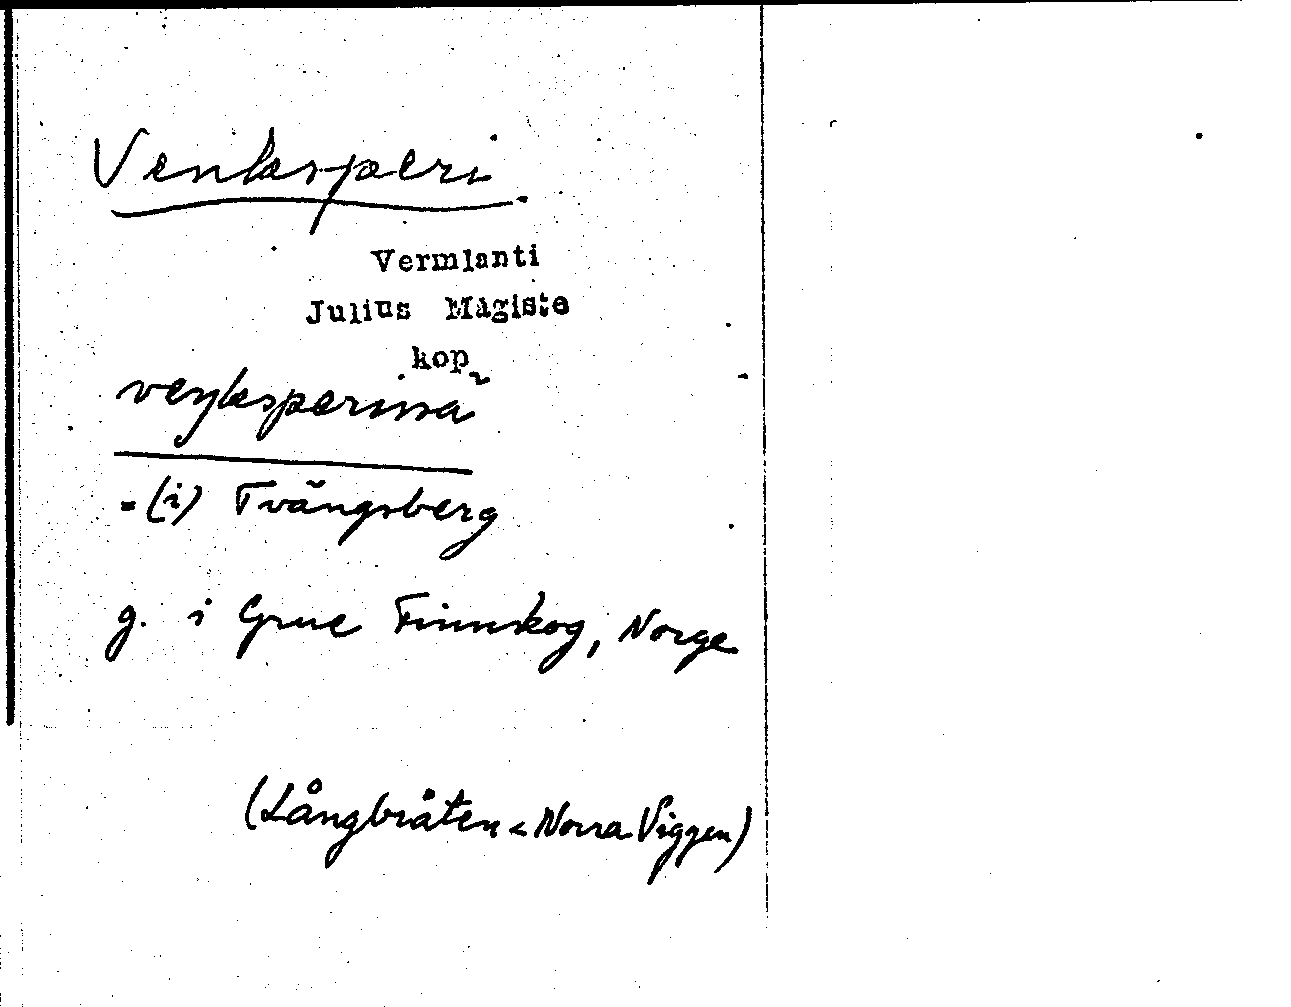 Venksperi
Vermlanti
Julius Mägiste
kop
veŋksperissa
= (i) Tvängsberg
g. i Grue Finnskog, Norge
(Långbråten < Norra Viggen)